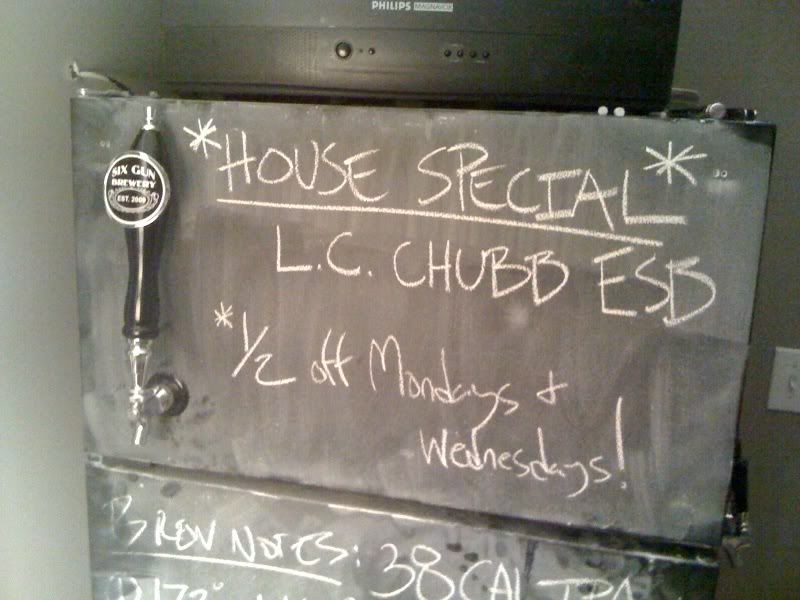 PHILIPS MAGNAVOX
SIX GUN
BREWERY
EST. 2009
*HOUSE SPECIAL*
L.C. CHUBB ESB
*1/2 off Mondays &
Wednesdays!
BREW NOTES: 38 CAL IPA
172°